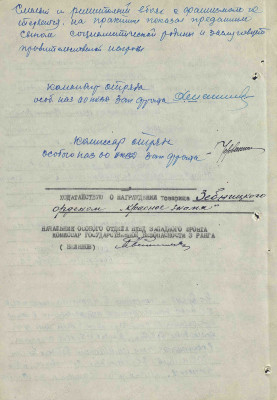 Смелый и решительный в боях с фашизмом
на практике показал преданным
сыном социалистической родины и заслуживает
правительственной награды
командир отряда
особ. наз. Зап фронта
Комиссар отряда
особого наз. Зап фронта
ХОДАТАЙСТВО О НАГРАЖДЕНИИ товарища Зебницкого
орденом "Красное Знамя"
НАЧАЛЬНИК ОСОБОГО ОТДЕЛА НКВД ЗАПАДНОГО ФРОНТА
КОМИССАР ГОСУДАРСТВЕННОЙ БЕЗОПАСНОСТИ 3 РАНГА